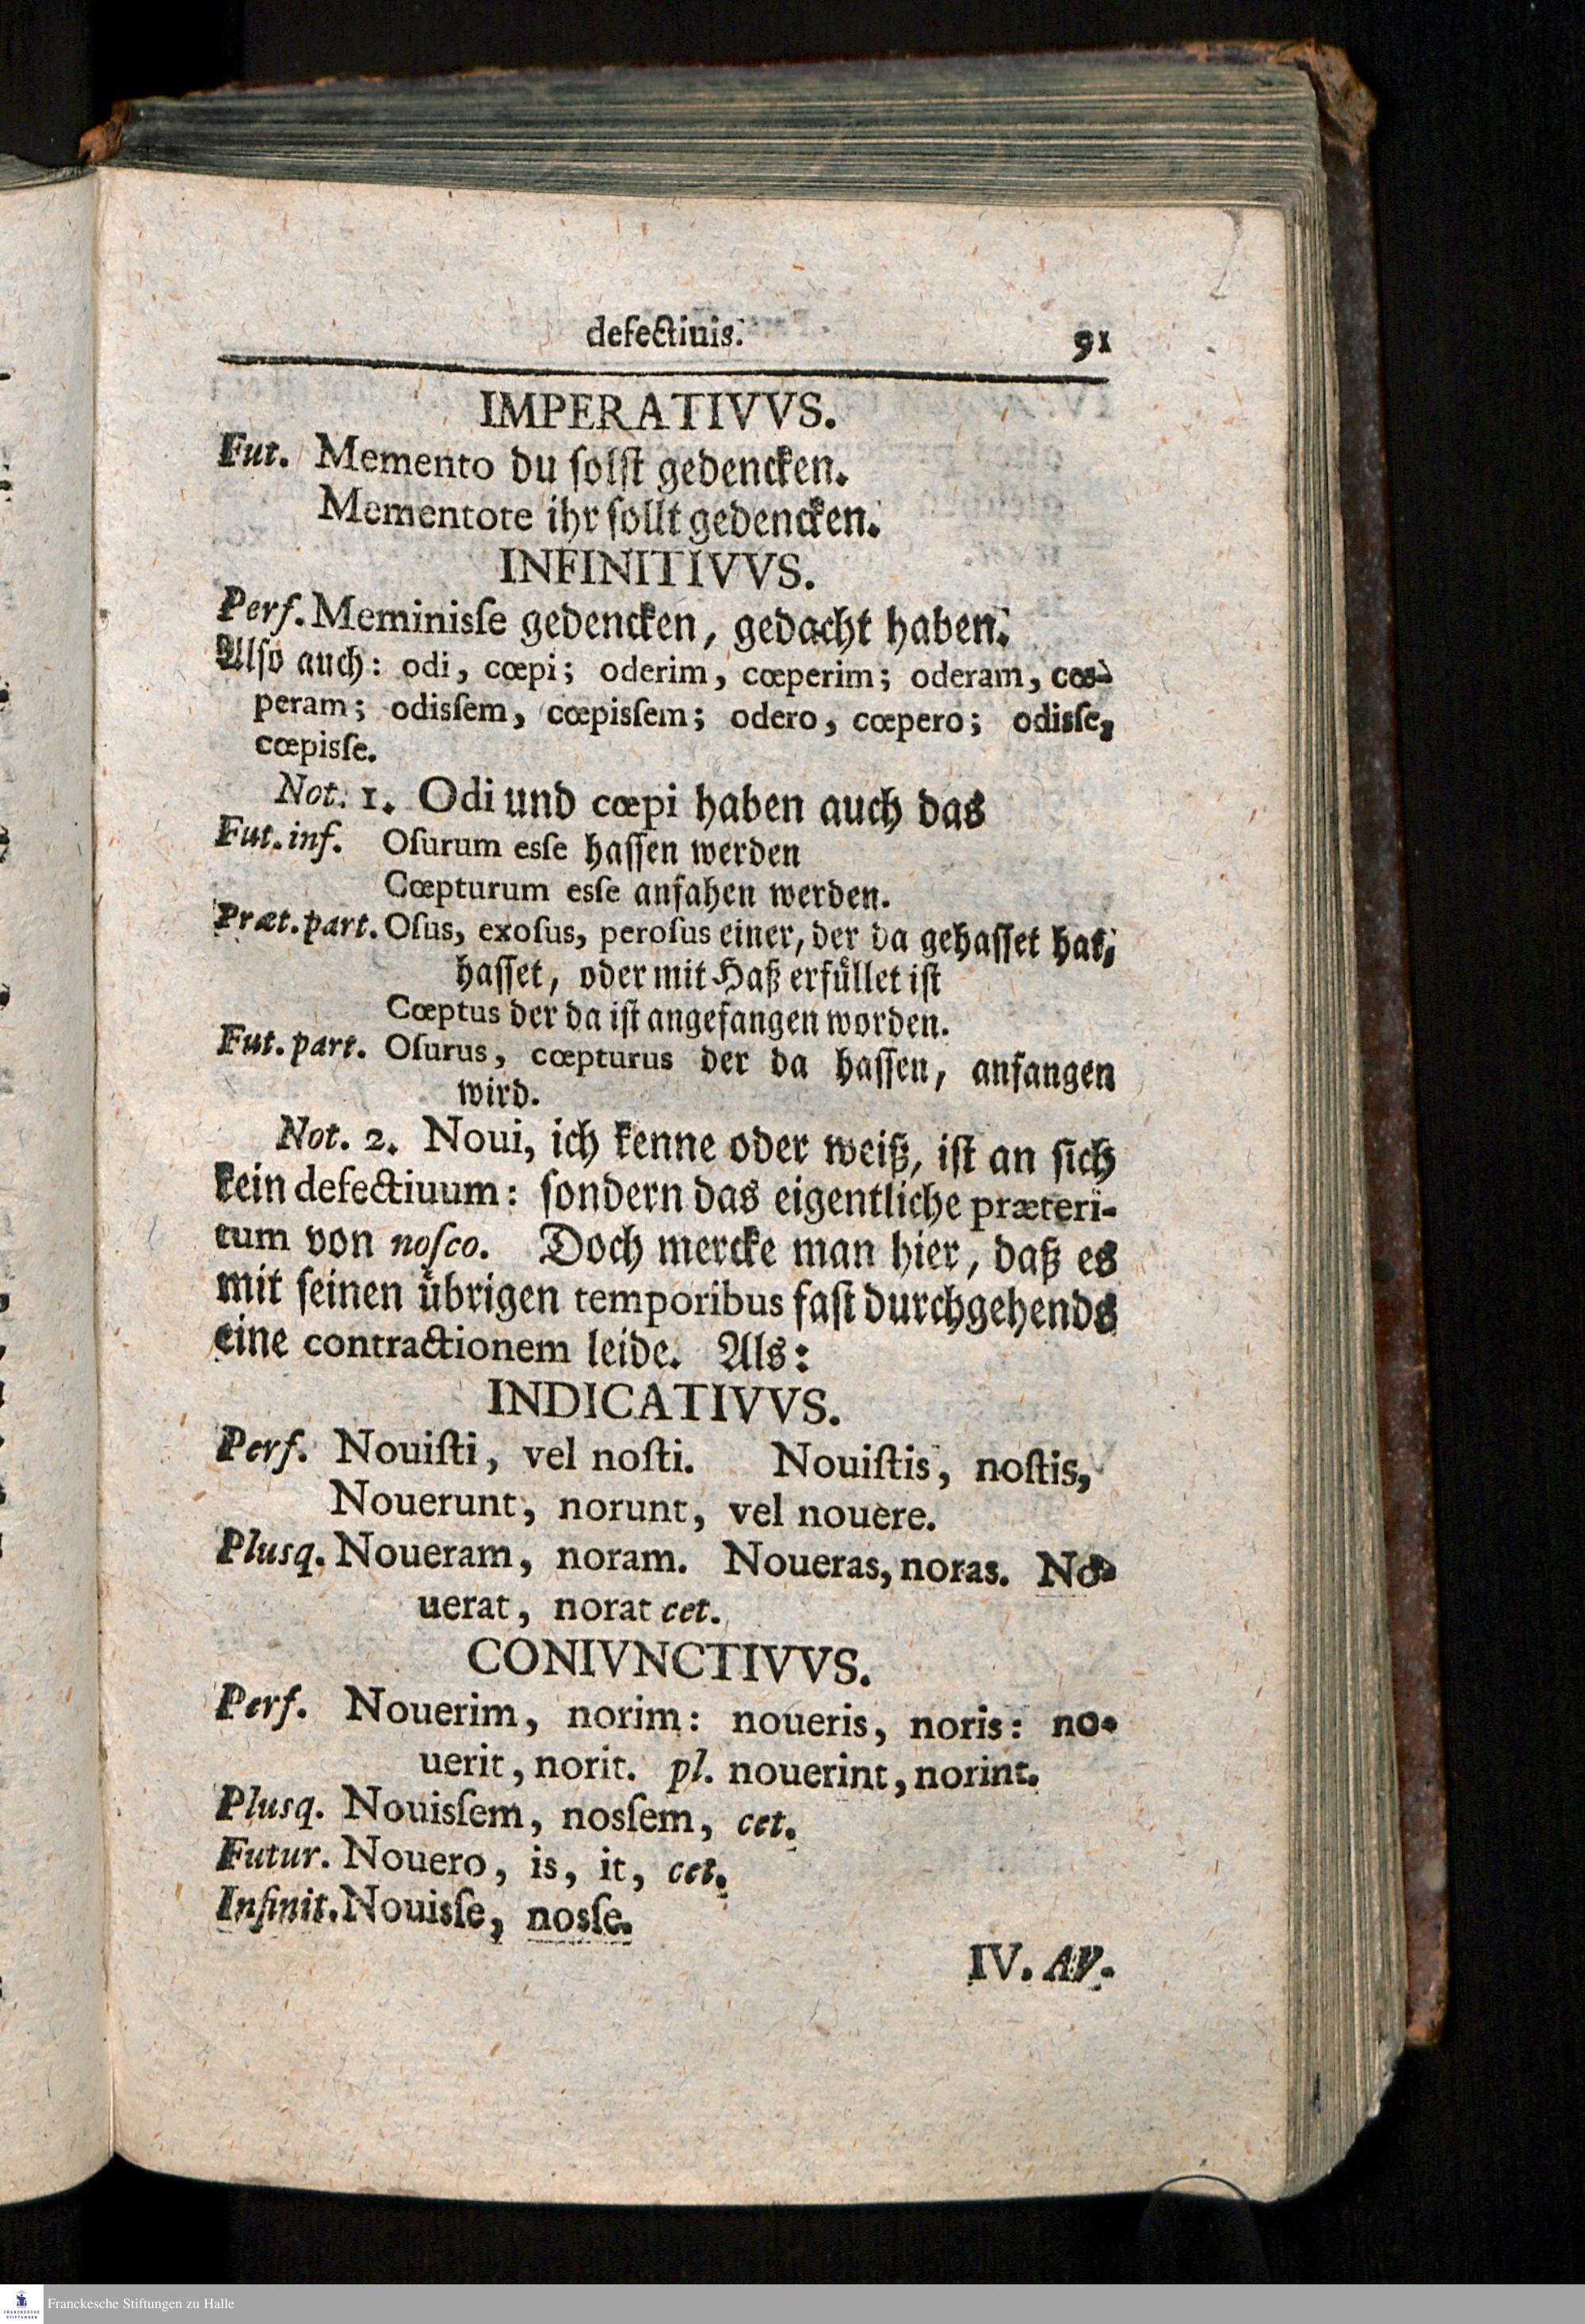 defectiuis. 91
IMPERATIVVS.
Fut. Memento du ſolſt gedencken.
Mementote ihr ſollt gedencken.
INFINITIVVS.
Perf. Meminisſe gedencken, gedacht haben.
Alſo auch: odi, cœpi; oderim, cœperim; oderam, cœ-
peram; odisſem, cœpisſem; odero, cœpero; odisſe,
cœpisſe.
Not. 1. Odi und cœpi haben auch das
Fut. inf. Oſurum esſe haſſen werden
Cœpturum esſe anfahen werden.
Præt. part. Oſus, exoſus, peroſus einer, der da gehaſſet hat,
haſſet, oder mit Haß erfüllet iſt
Cœptus der da iſt angefangen worden.
Fut. part. Oſurus, cœpturus der da haſſen, anfangen
wird.
Not. 2. Noui, ich kenne oder weiß, iſt an ſich
kein defectiuum: ſondern das eigentliche præteri-
tum von noſco. Doch mercke man hier, daß es
mit ſeinen übrigen temporibus faſt durchgehends
eine contractionem leide. Als:
INDICATIVVS.
Perf. Nouiſti, vel noſti. Nouiſtis, noſtis,
Nouerunt, norunt, vel nouere.
Plusq. Noueram, noram. Noueras, noras. No-
uerat, norat cet.
CONIVNCTIVVS.
Perf. Nouerim, norim: noueris, noris: no-
uerit, norit. pl. nouerint, norint.
Plusq. Nouisſem, nosſem, cet.
Futur. Nouero, is, it, cet.
Infinit. Nouisſe, nosſe.
IV. AV.
FRANCKESCHE
STIFTUNGEN
Franckesche Stiftungen zu Halle